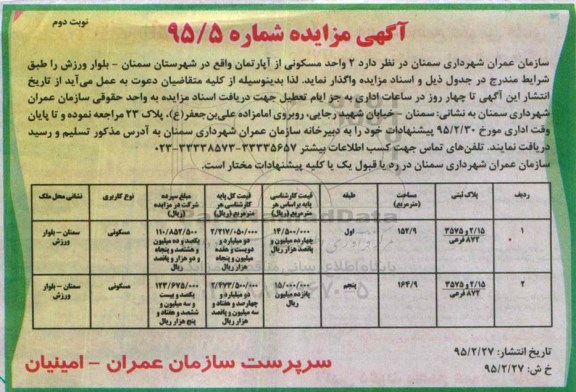 نوبت دوم
آگهی مزایده شماره ۹۵/۵
سازمان عمران شهرداری سمنان در نظر دارد ۲ واحد مسکونی از آپارتمان واقع در شهرستان سمنان - بلوار ورزش را طبق
شرایط مندرج در جدول ذیل و اسناد مزایده واگذار نماید. لذا بدینوسیله از کلیه متقاضیان دعوت به عمل می‌آید از تاریخ
انتشار این آگهی تا چهار روز در ساعات اداری به جز ایام تعطیل جهت دریافت اسناد مزایده به واحد حقوقی سازمان عمران
شهرداری سمنان به نشانی: سمنان - خیابان شهید رجایی، روبروی امامزاده علی‌بن‌جعفر(ع)، پلاک ۲۳ مراجعه نموده و تا پایان
وقت اداری مورخ ۹۵/۲/۳۰ پیشنهادات خود را به دبیرخانه سازمان عمران شهرداری سمنان به آدرس مذکور تسلیم و رسید
دریافت نمایند. تلفن‌های تماس جهت کسب اطلاعات بیشتر ۳۳۳۳۵۶۵۷-۳۳۳۳۸۵۷۳-۰۲۳
سازمان عمران شهرداری سمنان در رد یا قبول یک یا کلیه پیشنهادات مختار است.
ردیف پلاک ثبتی مساحت (مترمربع) طبقه قیمت کارشناسی پایه براساس هر مترمربع (ریال) قیمت کل پایه کارشناسی هر مترمربع (ریال) مبلغ سپرده شرکت در مزایده (ریال) نوع کاربری نشانی محل ملک
۱ ۲/۱۵ و ۳۵۷۵ ۸۷۲ فرعی ۱۵۲/۹ اول ۱۴/۵۰۰/۰۰۰ چهارده میلیون و پانصد هزار ریال ۲/۲۱۷/۰۵۰/۰۰۰ دو میلیارد و دویست و هفده میلیون و پنجاه هزار ریال ۱۱۰/۸۵۲/۵۰۰ یکصد و ده میلیون و هشتصد و پنجاه و دو هزار و پانصد ریال مسکونی سمنان - بلوار ورزش
۲ ۲/۱۵ و ۳۵۷۵ ۸۷۲ فرعی ۱۶۴/۹ پنجم ۱۵/۰۰۰/۰۰۰ پانزده میلیون ریال ۲/۴۷۳/۵۰۰/۰۰۰ دو میلیارد و چهارصد و هفتاد و سه میلیون و پانصد هزار ریال ۱۲۳/۶۷۵/۰۰۰ یکصد و بیست و سه میلیون و ششصد و هفتاد و پنج هزار ریال مسکونی سمنان - بلوار ورزش
تاریخ انتشار: ۹۵/۲/۲۷
خ ش: ۹۵/۲/۲۷
سرپرست سازمان عمران - امینیان